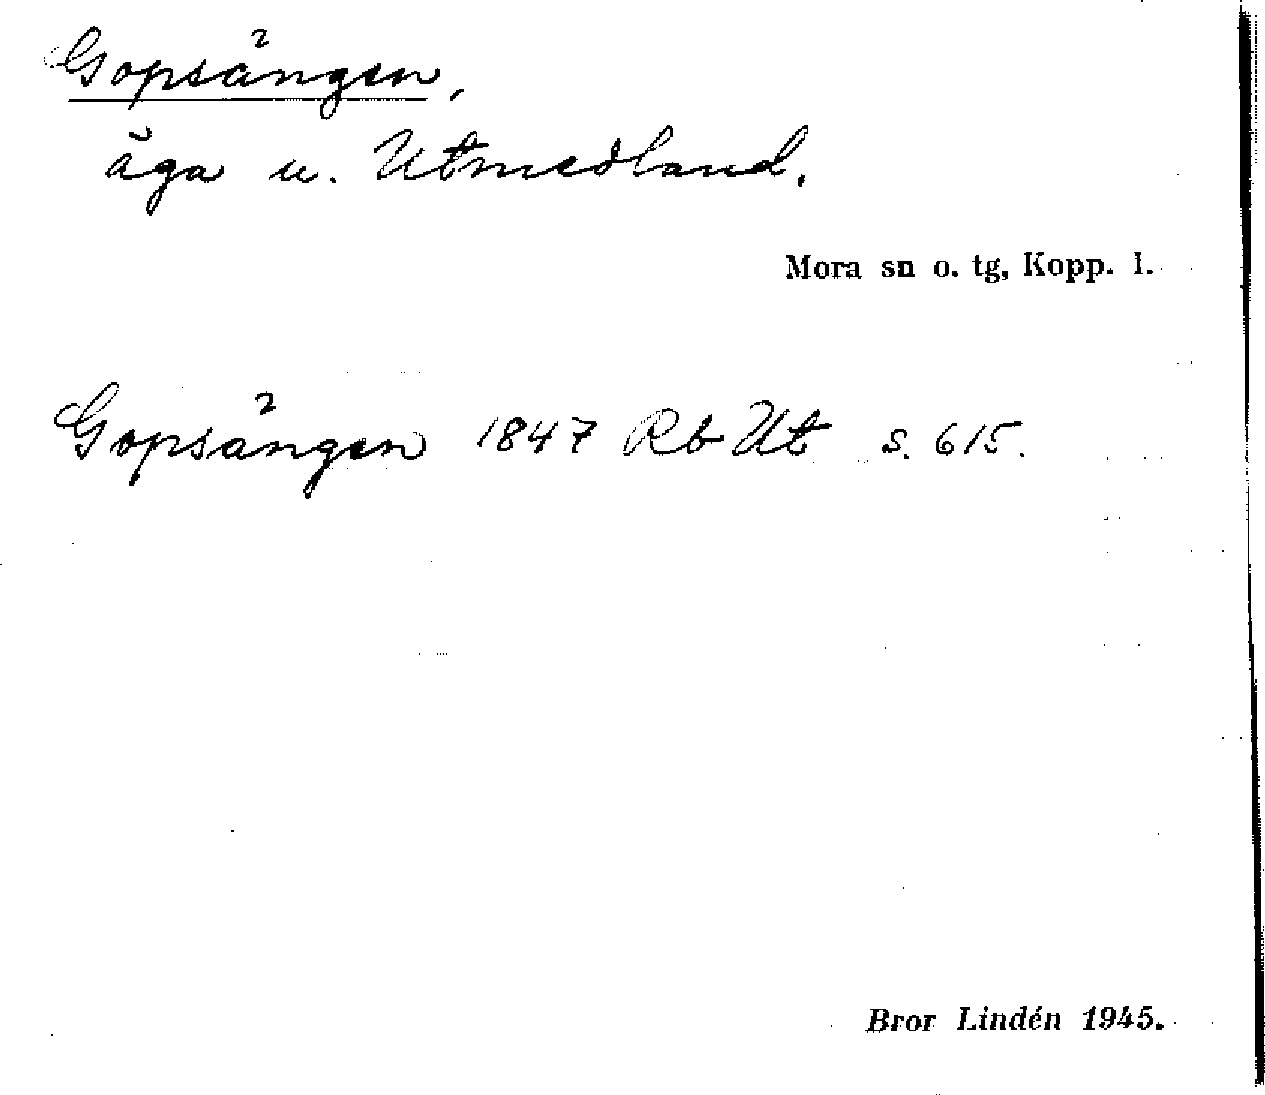 Gopsängen,
äga u. Utmedland.
Mora sn o. tg, Kopp. l.
Gopsängen 1847 Rb Ut s. 615.
Bror Lindén 1945.